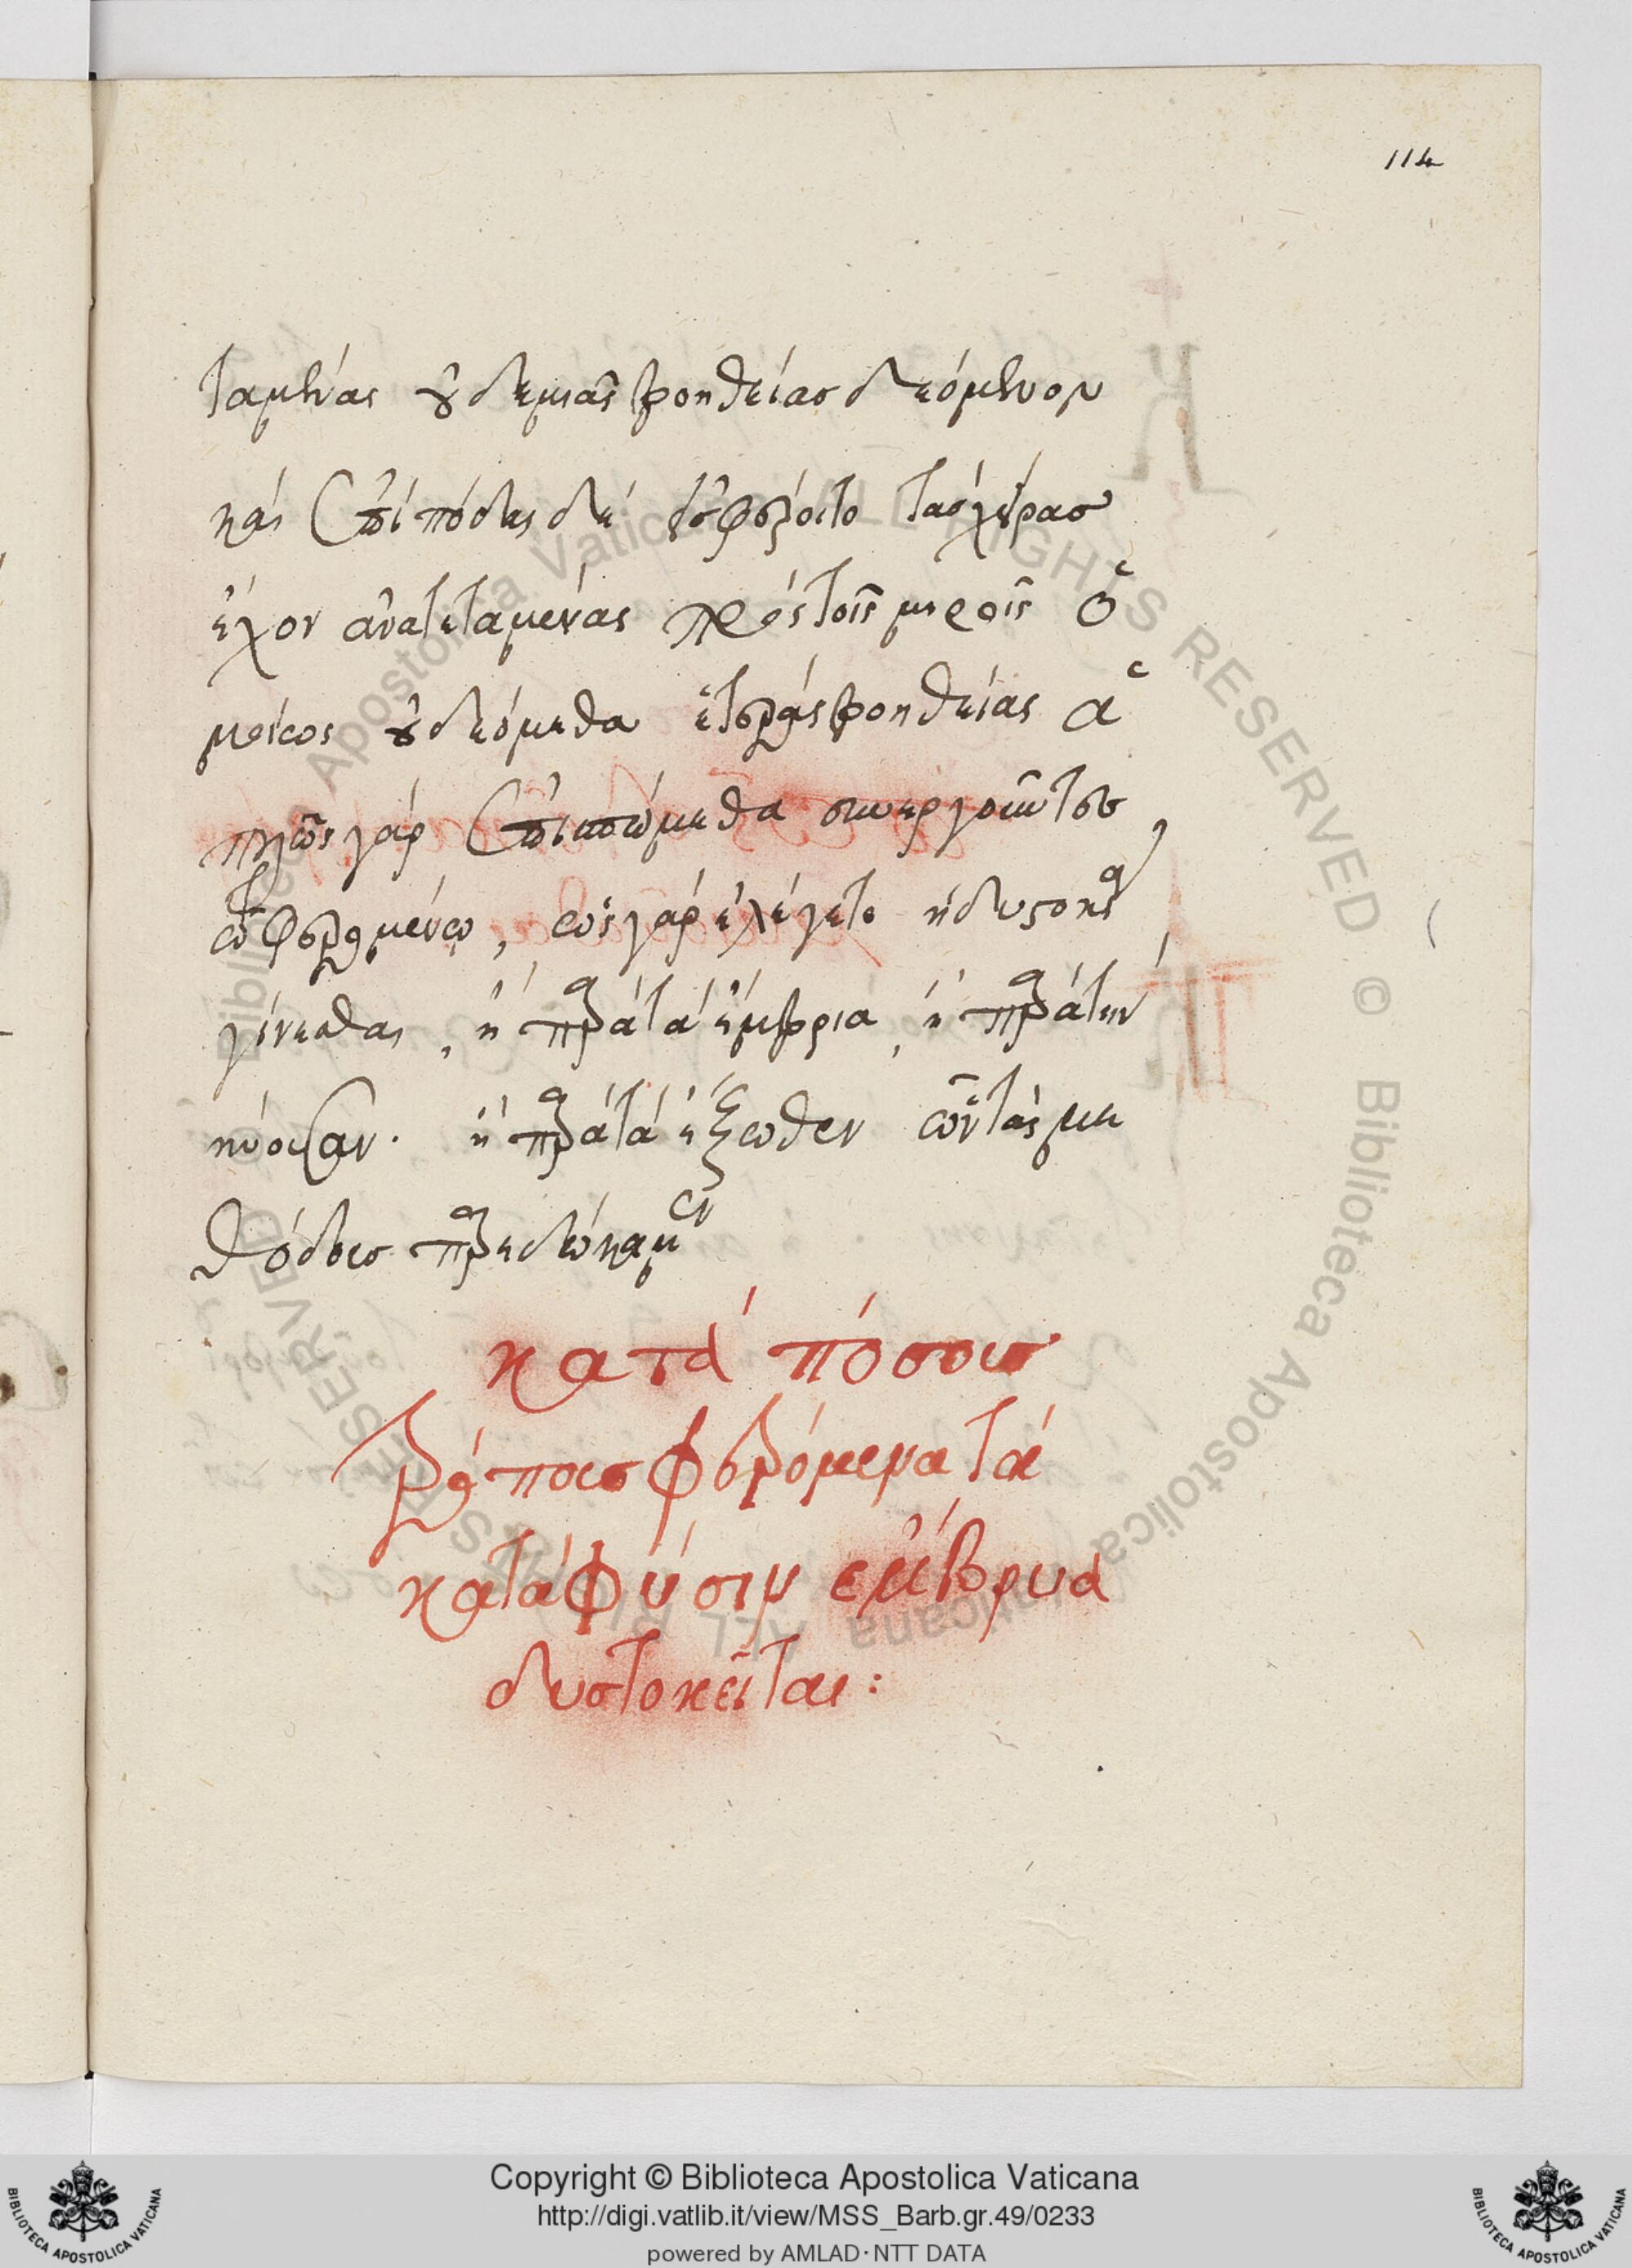 114
ταμένας οὐδεμιᾶς βοηθείας δεόμενον
κἂν ἐπὶ πόδας δὲ ἐσφέροιτο τὰς χεῖρας
ἔχον ἀνατεταμένας πρὸς τοῖς μηροῖς ὁ
μοίως οὐ δεόμεθα ἑτέρας βοηθείας ἁ
πλῶς γὰρ ἐπισπώμεθα συνεργοῦντες
τῷ φερομένῳ, ὡς γὰρ ἐλέγετο ἡ δυστοκία
γίνεσθαι, ἢ παρὰ τὰ ἔμβρια, ἢ παρὰ τὴν
κύουσαν. ἢ παρὰ τὰ ἔξωθεν ὧν τὰς με
θόδους παρεδώκαμεν
κατὰ πόσους
τρόπους φερόμενα τὰ
κατὰ φύσιν ἐμβρυὰ
δυστοκεῖται:
Copyright © Biblioteca Apostolica Vaticana
http://digi.vatlib.it/view/MSS_Barb.gr.49/0233
powered by AMLAD·NTT DATA
BIBLIOTECA APOSTOLICA VATICANA
BIBLIOTECA APOSTOLICA VATICANA
Biblioteca Apostolica Vaticana ALL RIGHTS RESERVED © Biblioteca Apostolica Vaticana ALL RIGHTS RESERVED ©